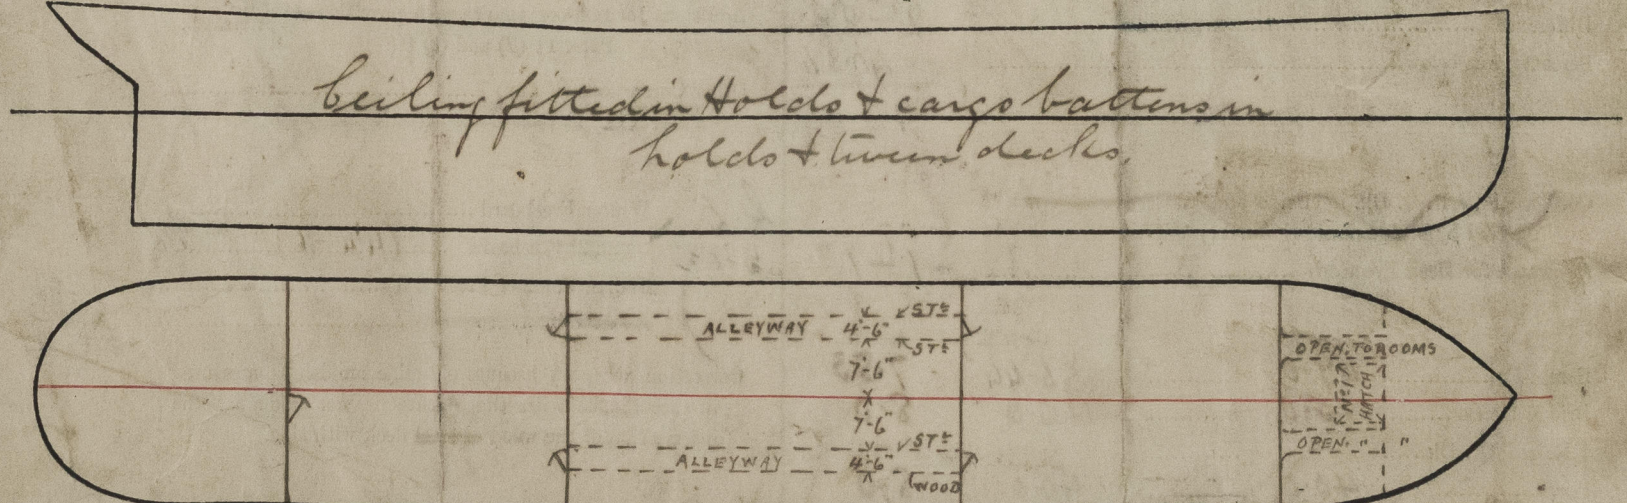 Ceiling fitted in Holds & cargo battens in
holds & tween decks.
STL
ALLEYWAY 4'-6"
STL
7'-6"
7'-6"
STL
ALLEYWAY 4'-6"
WOOD
OPEN TO ROOMS
Nº 1
HATCH
OPEN " "